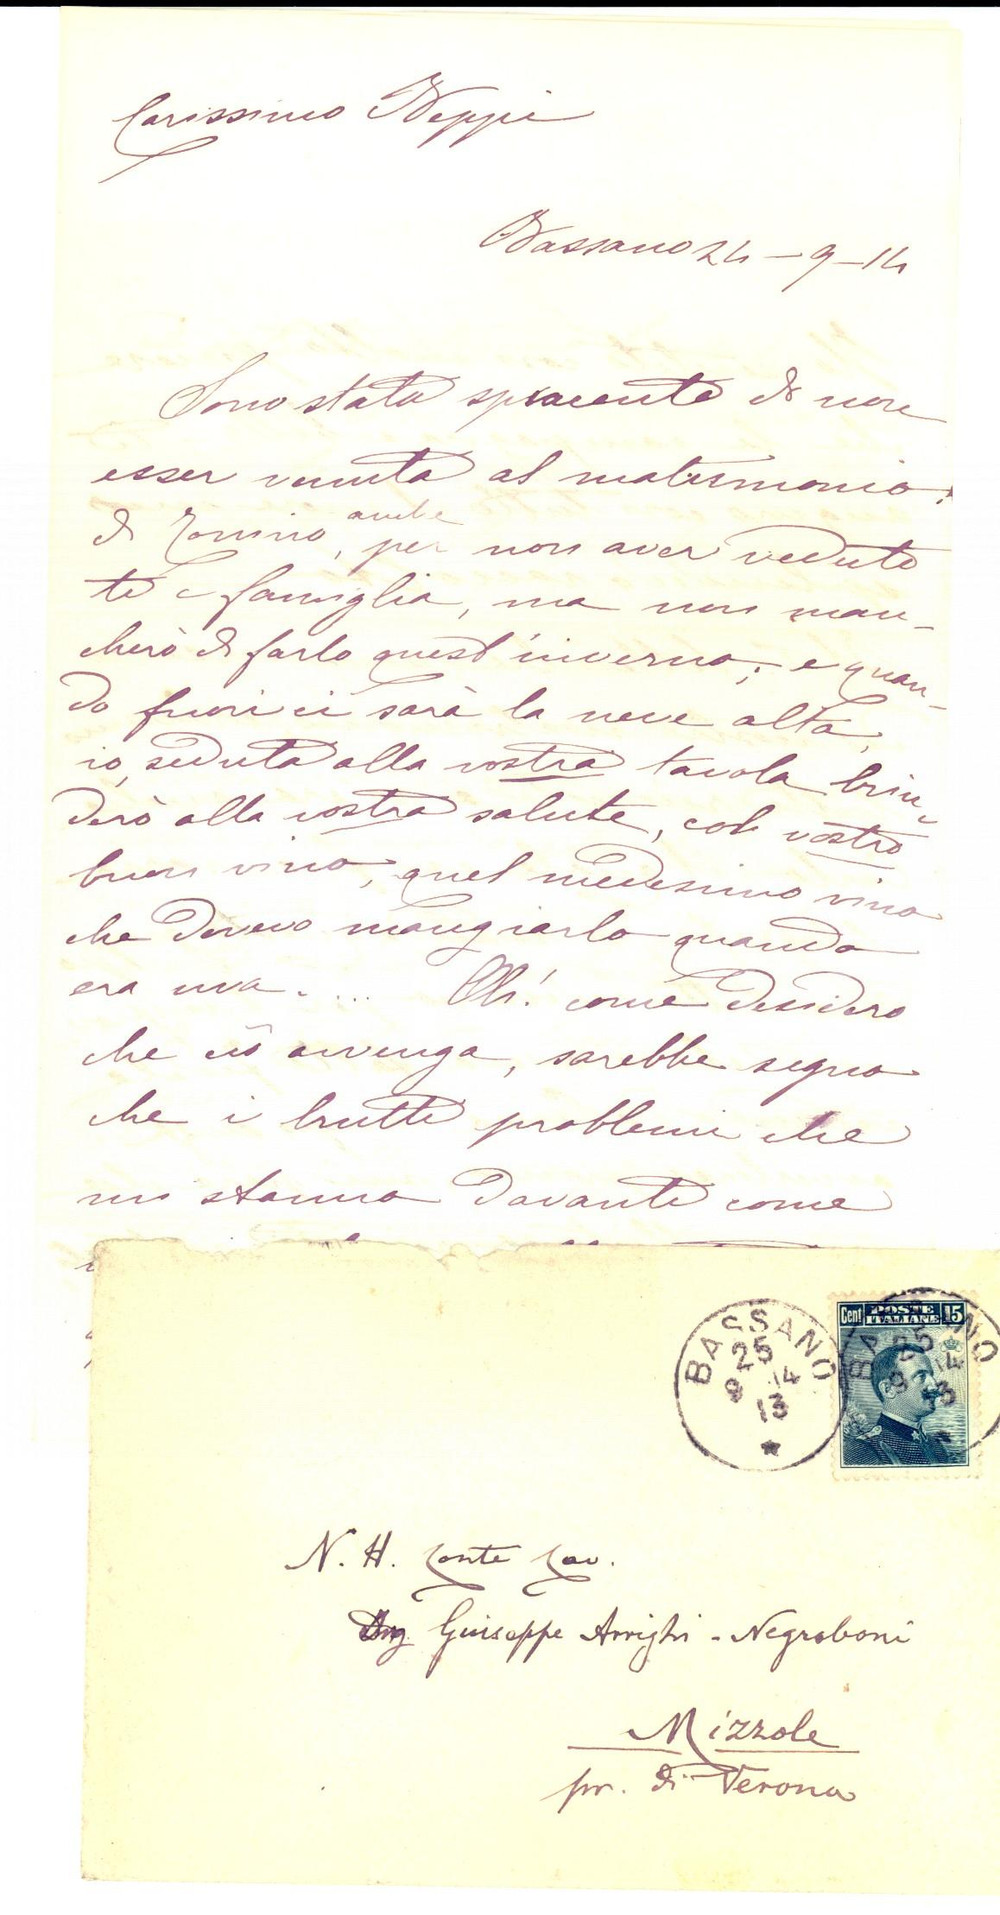 Carissimo Beppi
Bassano 24-9-14
Sono stata spiacente di non
esser venuta al matrimonio,
di Tonino, anche per non aver veduto
te e famiglia, ma non man-
cherò di farlo quest'inverno; e quan-
do fuori ci sarà la neve alta,
io, seduta alla vostra tavola brin-
derò alla vostra salute, col vostro
buon vino, quel medesimo vino
che dovevo mangiarlo quando
era uva.... Oh! come desidero
che ciò avvenga, sarebbe segno
che i brutti problemi che
mi stanno davanti come
BASSANO
25
9 14
13
BASSANO
25
9 14
13
Cent POSTE ITALIANE 15
N. H. Conte Cav.
Ing Giuseppe Arrighi - Negroboni
Mizzole
pr. di Verona